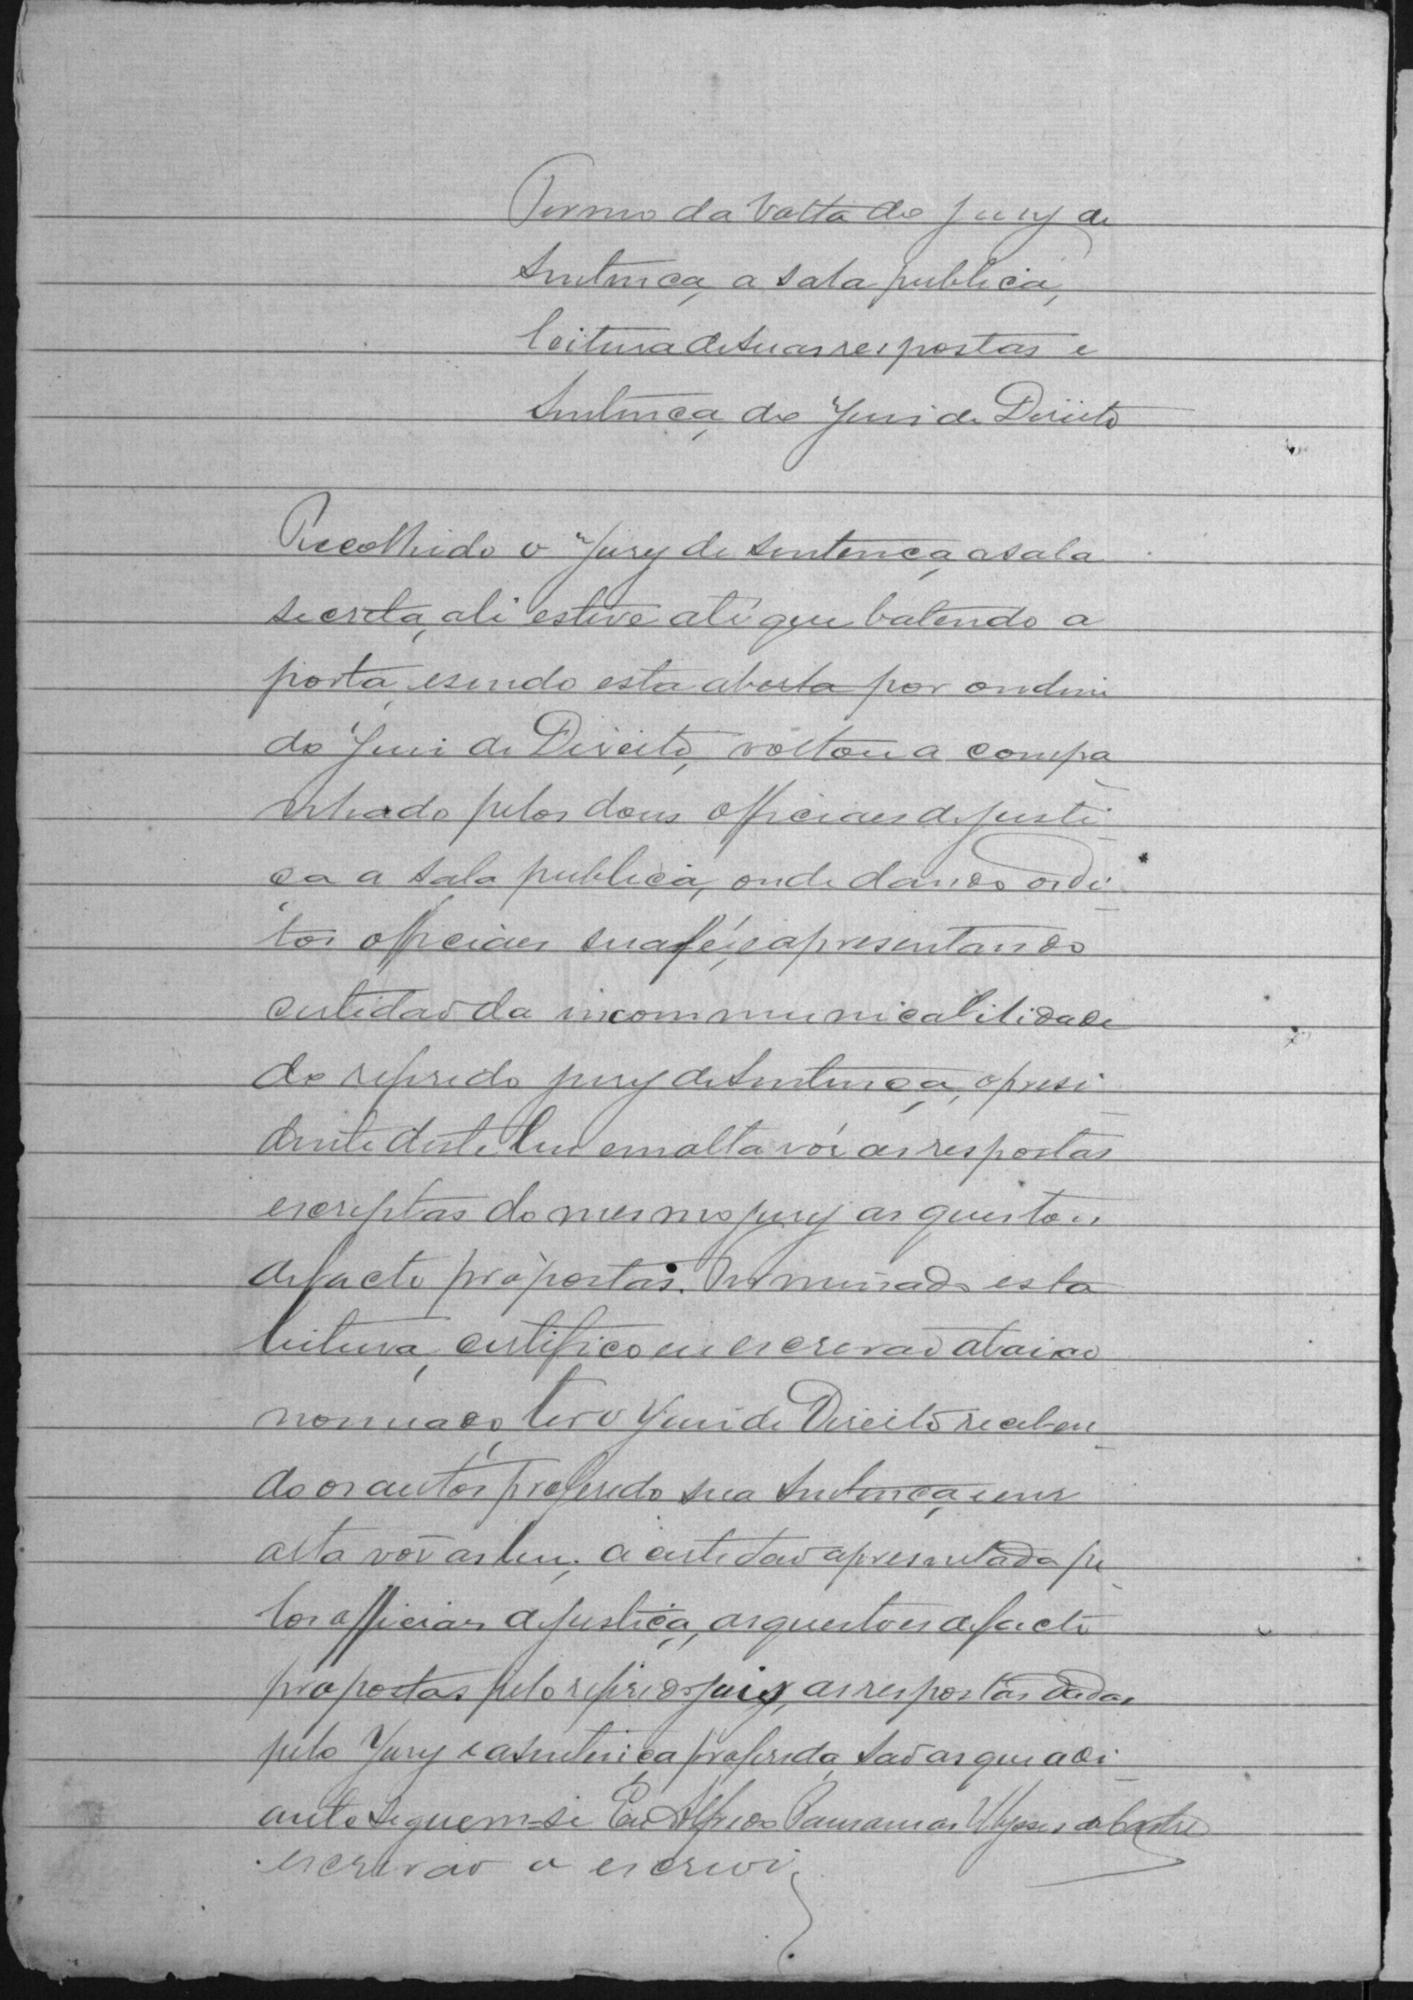 Termo da Volta do Jury de
Sentença, a sala publica,
leitura de suas respostas e
Sentença do Juis de Direito
Recolhido o Jury de Sentença a sala
secreta, ali esteve até que batendo a
porta, e sendo esta aberta por ordem
do Juis de Direito, voltou a compa
nhado pelos dous officiaes de justi-
ça a sala publica, onde dando os di-
tos officiaes sua fé, e apresentando
certidaõ da incommunicabilidade
do referido jury de Sentença, o presi-
dente deste leu em alta vós as respostas
escriptas do mesmo jury as questões
de facto propostas. Terminada esta
leitura, certifico eu escrevaõ abaixo
nomeado, ter o Juis de Direito receben-
do os autos proferido sua Sentença e em
alta vós as leu; a certidaõ apresentada pe-
los officiaes de justiça, as questões de facto
propostas pelo referido juis, as respostas dadas
pelo Jury e a sentença proferida, saõ as que adi-
ante seguem-se Eu Alfredo Ulysses
escrevaõ o escrevi